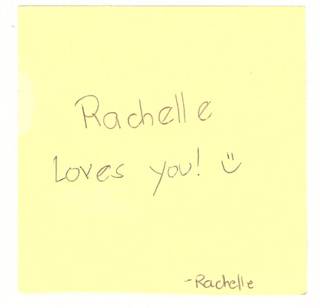 Rachelle
Loves you! :)
-Rachelle